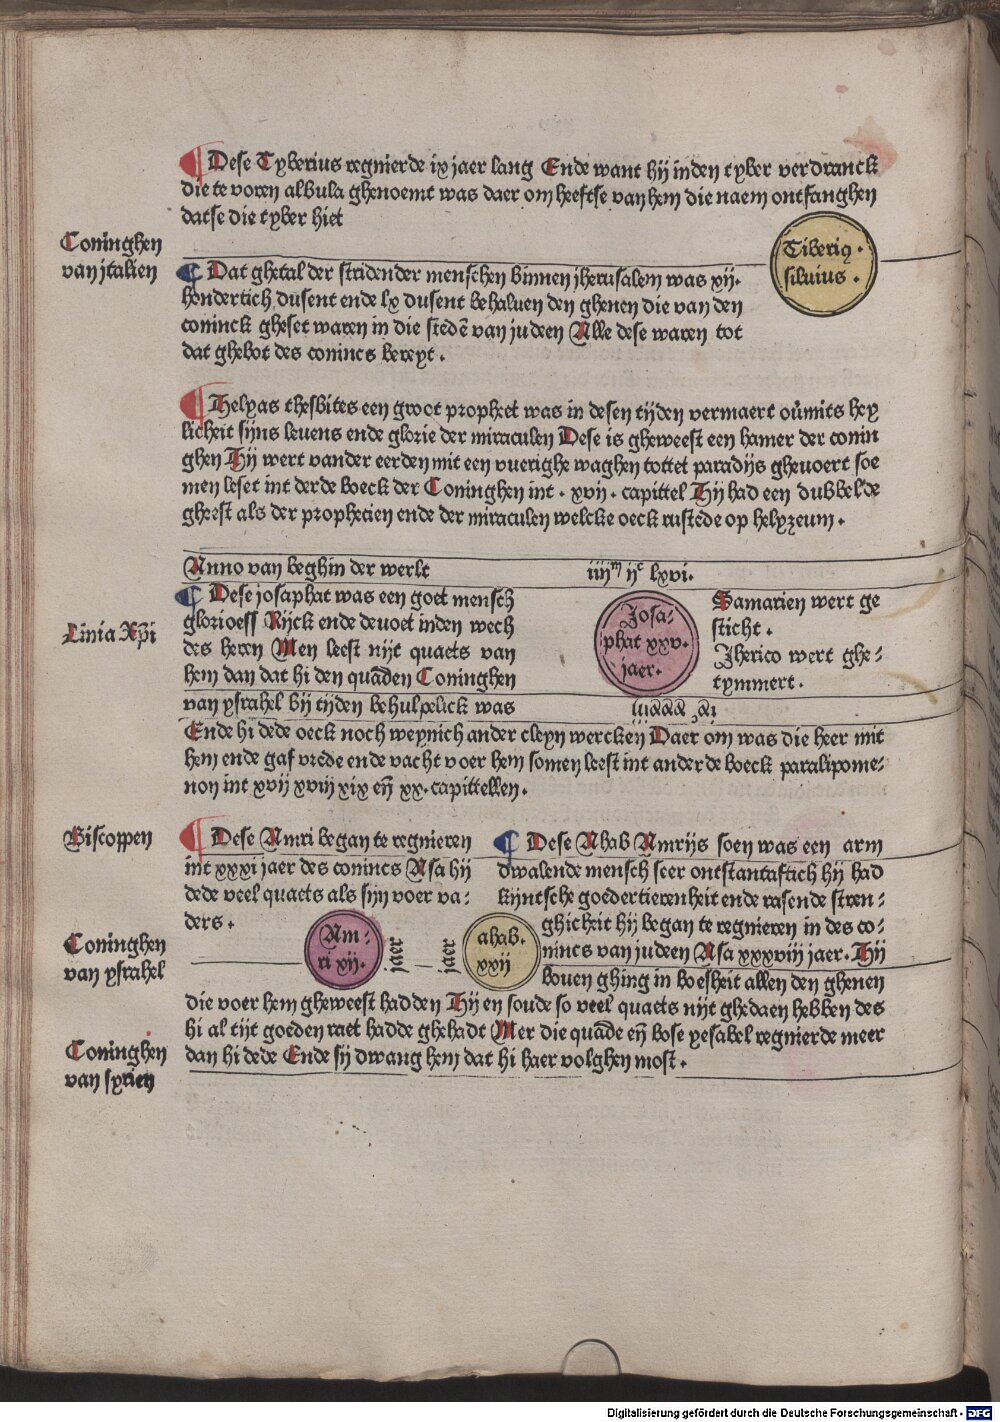 ¶ Dese Tyberius regnierde ix jaer lang Ende want hij inden tyber verdranck
die te voren albula ghenoemt was daer om heeftse van hem die naem ontfanghen
datse die tyber hiet
Coninghen
van jtalien
Tiberiꝰ
siluius .
¶ Dat ghetal der stridender menschen binnen jherusalem was xij.
hondertich dusent ende lx dusent behaluen den ghenen die van den
coninck gheset waren in die stedē van judeen Alle dese waren tot
dat ghebot des conincs bereyt .
¶ Helyas thesbites een groot propheet was in desen tijden vermaert oūmits hey
licheit sijns leuens ende glorie der miraculen Dese is gheweest een hamer der conin
ghen Hij wert vander eerden mit een vuerighe waghen tottet paradijs gheuoert soe
men leset int derde boeck der Coninghen int . xvij . capittel Hij had een dubbelde
gheest als der prophecien ende der miraculen welcke oeck rustede op helyzeum .
Anno van beghin der werlt iiijᵐ ijᶜ lxvi.
Linia Xp̄i
¶ Dese josaphat was een goet mensch
glorioess Rijck ende deuoet inden wech
des heren Men leest nijt quaets van
hem dan dat hi den quādēn Coninghen
van ysrahel bij tijden behulpelick was
Josa-
phat xxv.
jaer.
Samarien wert ge
sticht .
Jherico wert ghe-
tymmert .
Ende hi dede oeck noch weynich ander cleyn wercken Daer om was die heer mit
hem ende gaf vrede ende vacht voer hem somen leest int ander de boeck paralipome-
non int xvij xviij xix eñ xx. capittellen .
Biscoppen
¶ Dese Amri began te regnieren
int xxxi jaer des conincs Asa hij
dede veel quaets als sijn voer va-
ders .
¶ Dese Ahab Amrijs soen was een arm
dwalende mensch seer onstantaftich hij had
kijntsche goedertierenheit ende rasende stren-
ghicheit hij began te regnieren in des co-
nincs van judeen Asa xxxviij jaer . Hij
bouen ghing in boesheit allen den ghenen
Coninghen
van ysrahel
Am-
ri xij.
jaer
jaer
ahab.
xxij
die voer hem gheweest hadden Hij en soude so veel quaets nijt ghedaen hebben des
hi al tijt goeden raet hadde ghehadt Mer die quāde eñ bose yesabel regnierde meer
dan hi dede Ende sij dwang hem dat hi haer volghen most .
Coninghen
van syrien
Digitalisierung gefördert durch die Deutsche Forschungsgemeinschaft - DFG